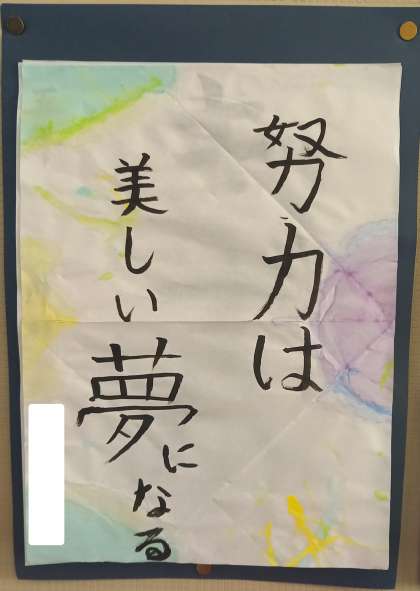 努力は
美しい夢になる